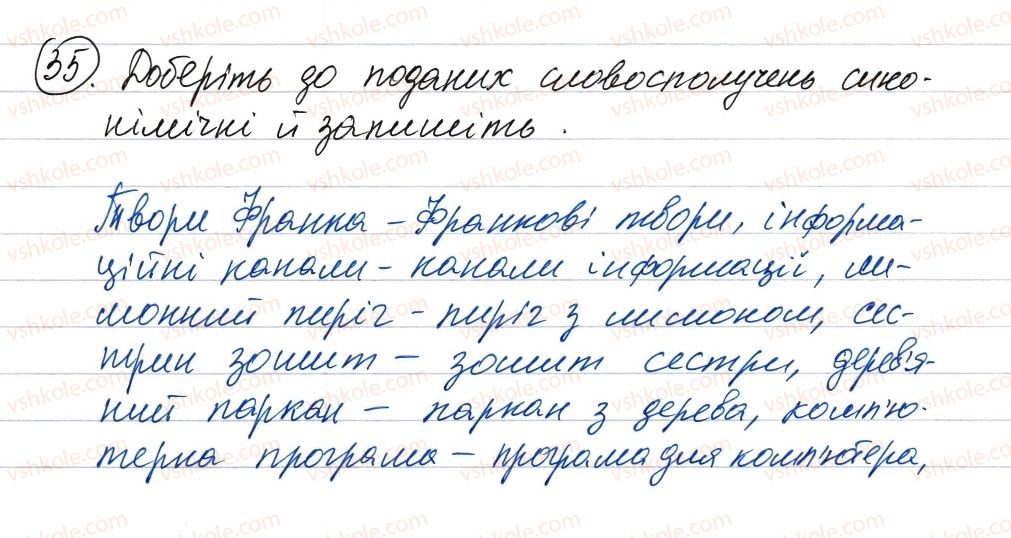 35. Доберіть до поданих словосполучень сино-
німічні й запишіть.
Твори Франка – Франкові твори, інформа-
ційні канали – канали інформації, ли-
монний пиріг – пиріг з лимоном, сес-
трин зошит – зошит сестри, дерев'я-
ний паркан – паркан з дерева, комп'ю-
терна програма – програма для комп'ютера,